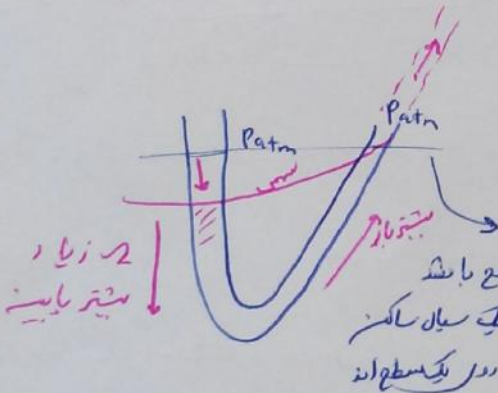 Patm
Patm
سهمی
بیشتر باز
زیاد
بیشتر پایین
ح باشد
یک سیال ساکن
روی یک سطح اند